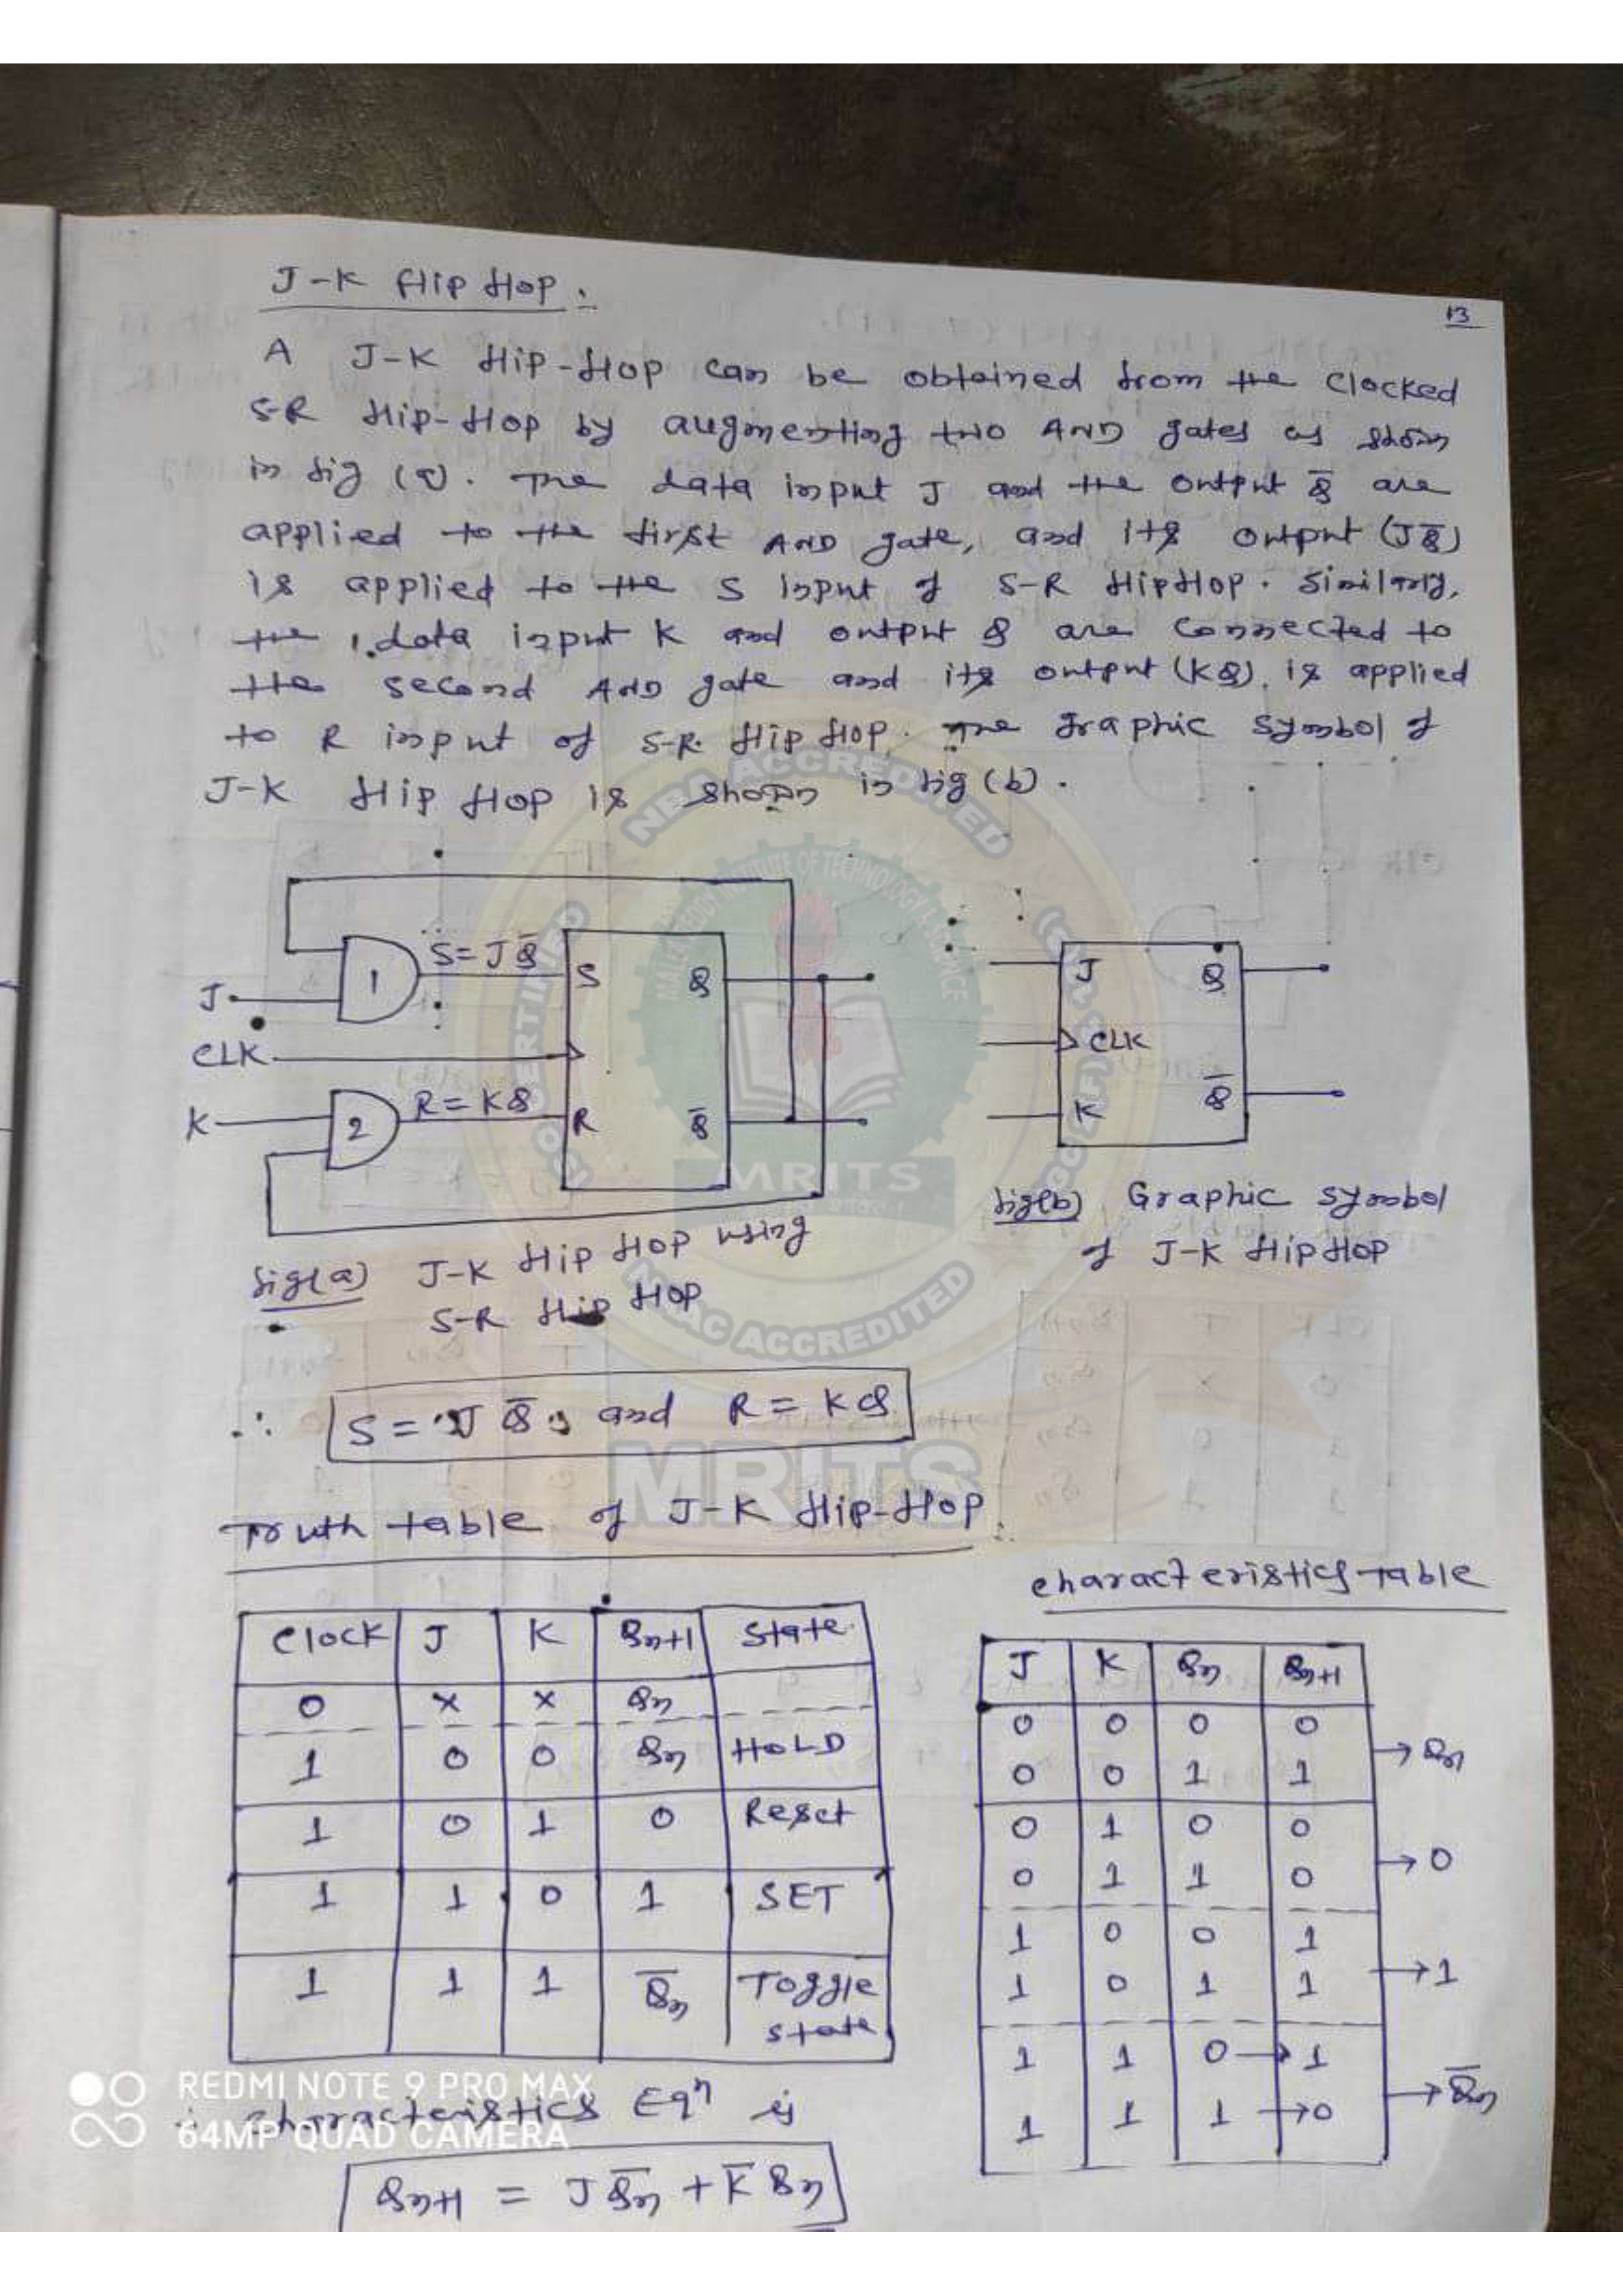 13
J-K flip flop.
A J-K flip-flop can be obtained from the clocked
S-R flip-flop by augmenting two AND gates as shown
in fig (a). The data input J and the output Q̅ are
applied to the first AND gate, and its output (JQ̅)
is applied to the S input of S-R flipflop. Similarly,
the data input K and output Q are connected to
the second AND gate and its output (KQ) is applied
to R input of S-R flip flop. The graphic symbol of
J-K flip flop is shown in fig (b).
J
1
S = JQ̅
S
Q
CLK
K
2
R = KQ
R
Q̅
fig(a) J-K flip flop using
S-R flip flop
J
Q
CLK
K
Q̅
fig(b) Graphic symbol
of J-K flipflop
∴ S = JQ̅ and R = KQ
Truth table of J-K flip-flop
Clock J K Qn+1 State
0 × × Qn
1 0 0 Qn HOLD
1 0 1 0 Reset
1 1 0 1 SET
1 1 1 Q̅n Toggle
state
characteristics Table
J K Qn Qn+1
0 0 0 0
0 0 1 1
→ Qn
0 1 0 0
0 1 1 0
→ 0
1 0 0 1
1 0 1 1
→ 1
1 1 0 → 1
1 1 1 → 0
→ Q̅n
∴ characteristics Eqn is
Qn+1 = JQ̅n + K̅Qn
NBA ACCREDITED
NAAC ACCREDITED
MRITS
MRITS
REDMI NOTE 9 PRO MAX
64MP QUAD CAMERA